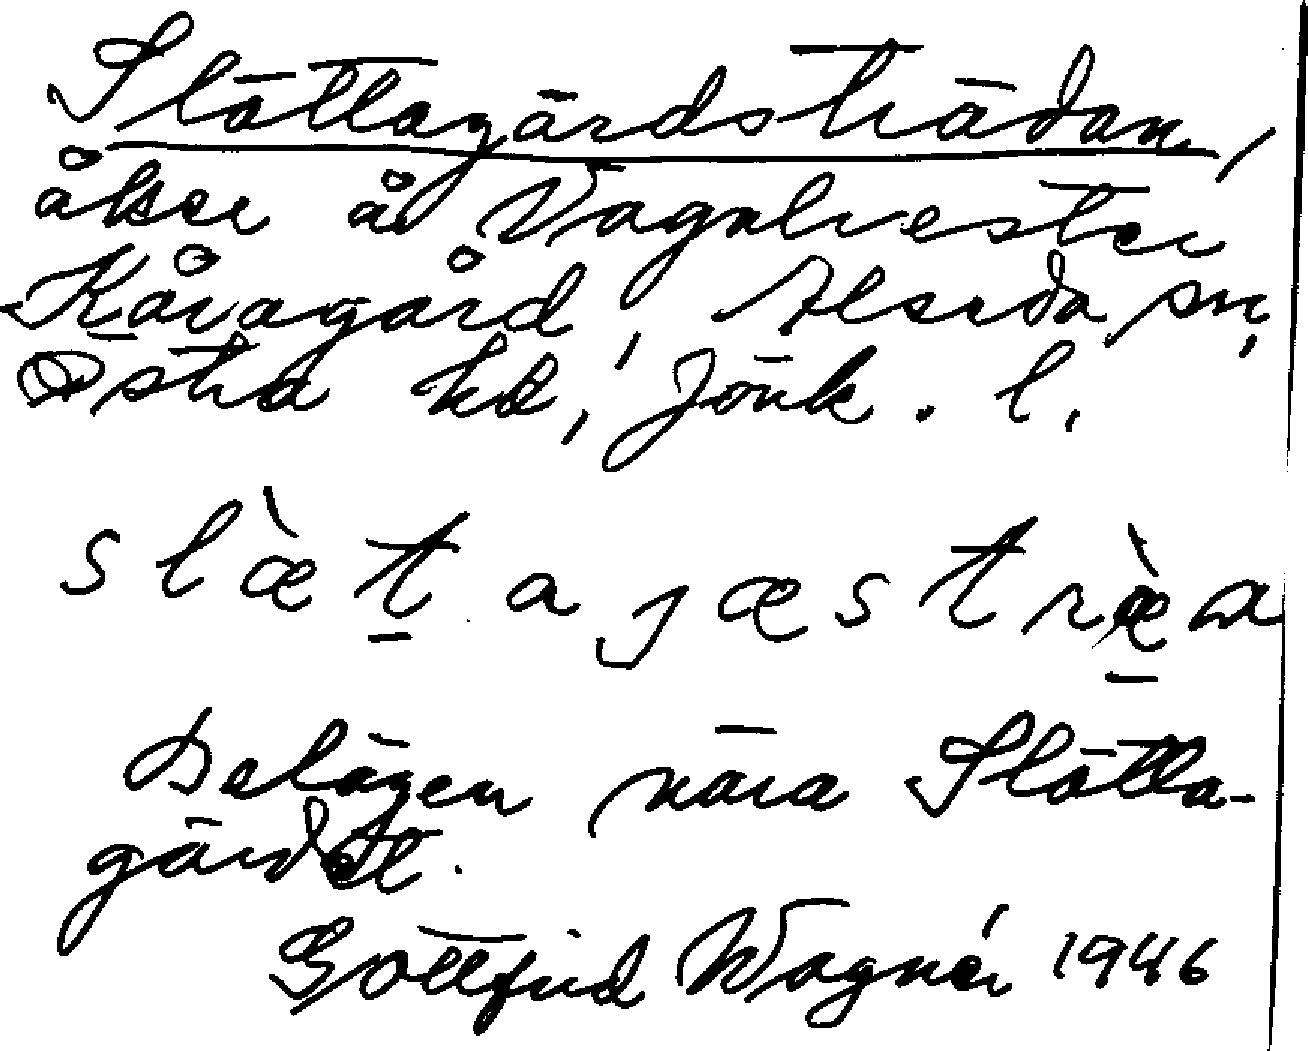 Slättagärdsträdan,
åker å Vagnhester
Kåragård, Alseda sn,
Östra hd, Jönk. l.
slæ̀t a jæstræ̀a
Belägen nära Slätta-
gärdet.
Gottfrid Wagnér 1946